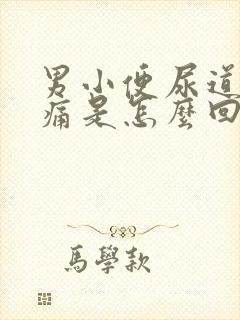 男小便尿道
痛是怎麼回
馬學款